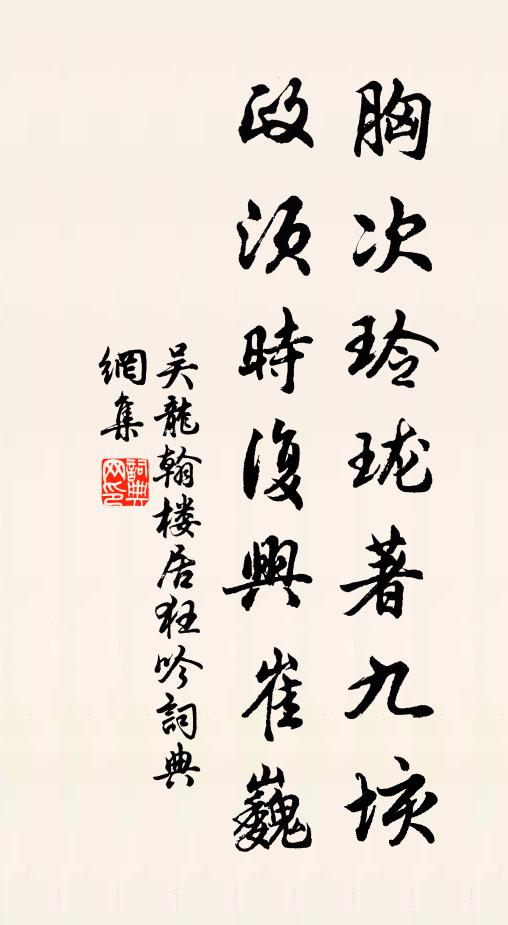 胸次玲珑著九垓
政须時復興崔巍
吴龍翰楼居狂吟詞典
網集
詞典网印